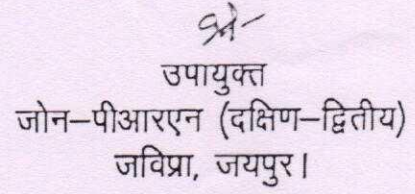 उपायुक्त
जोन–पीआरएन (दक्षिण–द्वितीय)
जविप्रा, जयपुर।